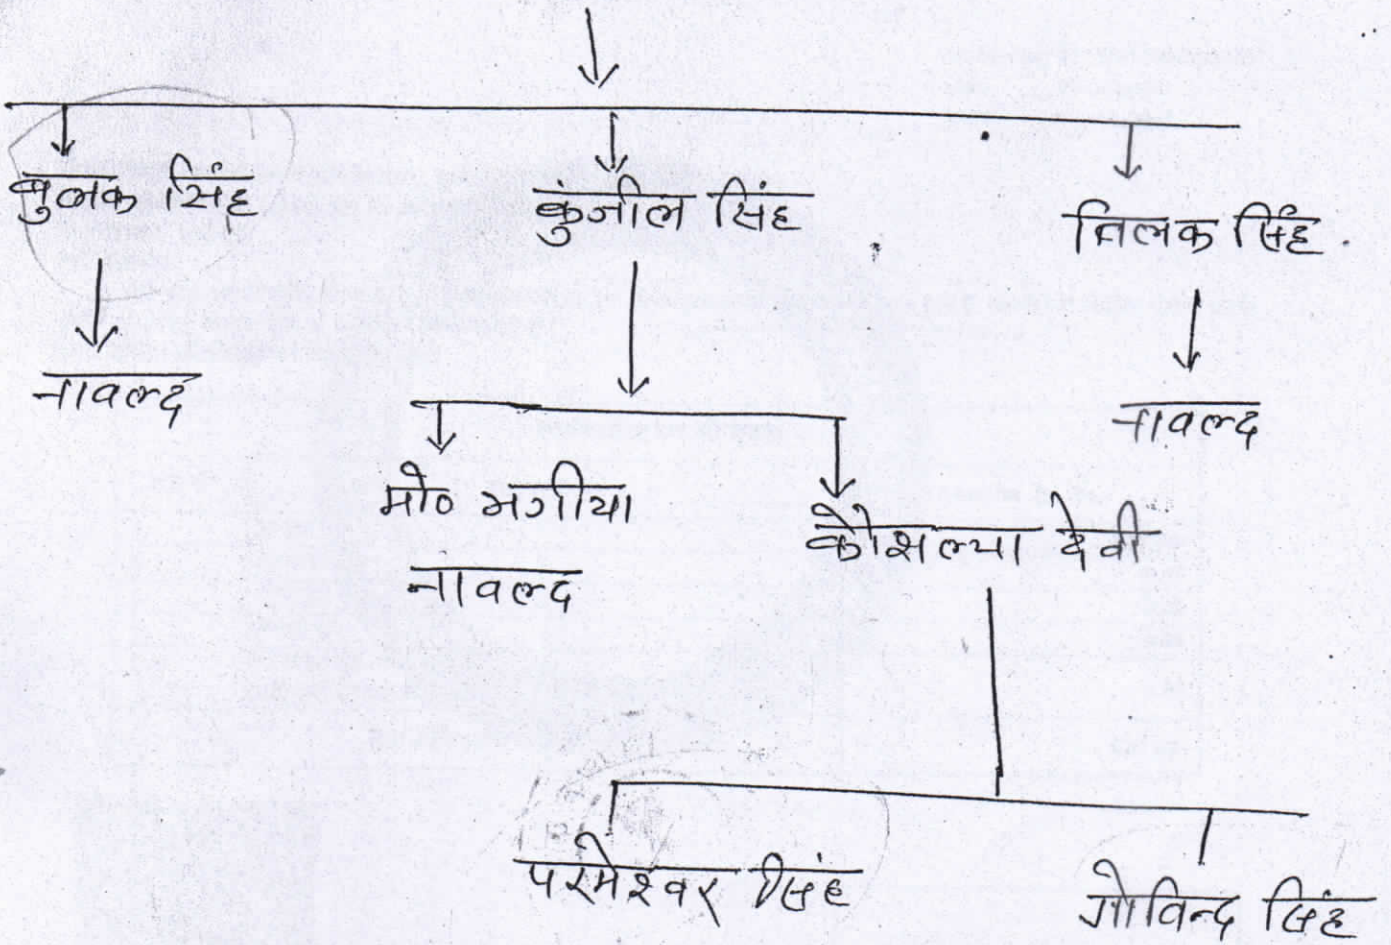 बुलक सिंह
कुंजील सिंह
तिलक सिंह
नावल्द
नावल्द
मो० भगीया
नावल्द
कौशल्या देवी
परमेश्वर सिंह
गोविन्द सिंह